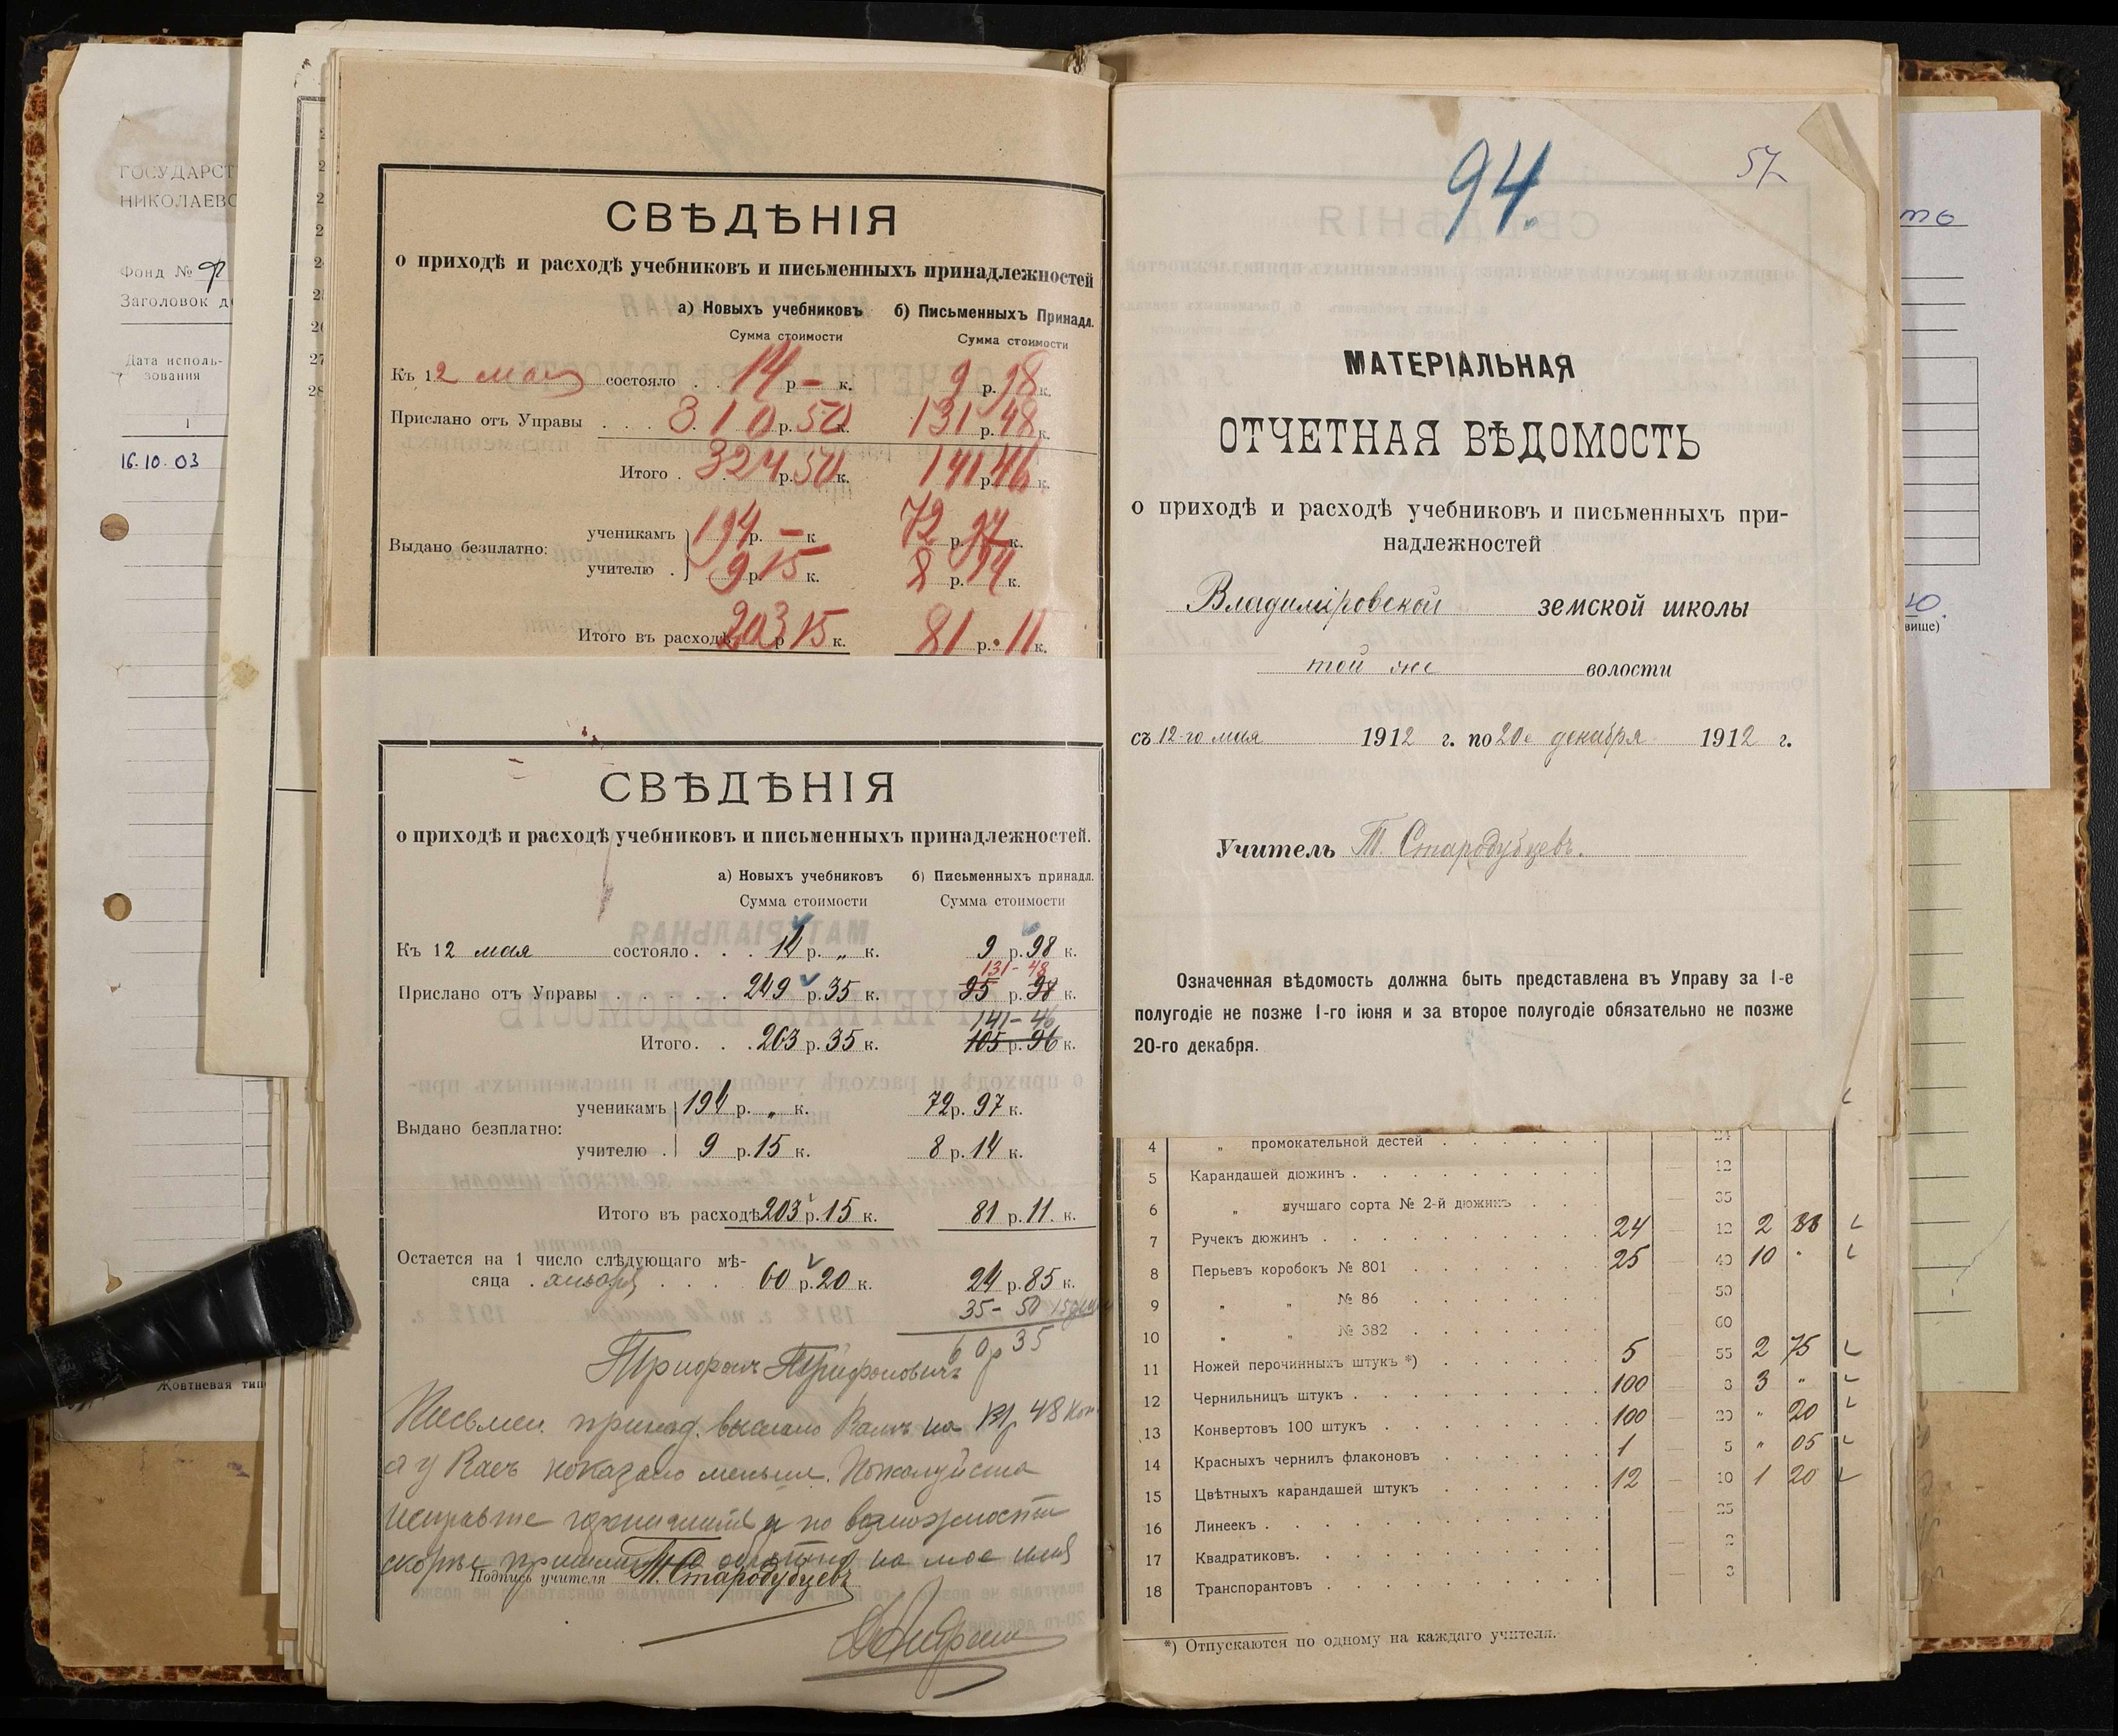 ГОСУДАРСТ
НИКОЛАЕВС
Фонд №
Заголовок д
Дата исполь-
зования
1
16.10.03
Жовтневая тип
СВѢДѢНІЯ
о приходѣ и расходѣ учебниковъ и письменныхъ принадлежностей
а) Новыхъ учебниковъ б) Письменныхъ Принадл.
Сумма стоимости Сумма стоимости
Къ 12 мая состояло . . 14 р – к. 9 р. 98 к.
Прислано отъ Управы . . . 310 р. 50 к. 131 р. 48 к.
Итого . 324 р. 50 к. 141 р. 46 к.
Выдано безплатно:
ученикамъ 194 р. – к 72 р. 97 к.
учителю . 9 р. 15 к. 8 р. 14 к.
Итого въ расходѣ 203 р 15 к. 81 р. 11 к.
СВѢДѢНІЯ
о приходѣ и расходѣ учебниковъ и письменныхъ принадлежностей.
а) Новыхъ учебниковъ б) Письменныхъ принадл.
Сумма стоимости Сумма стоимости
Къ 12 мая состояло . . . 14 р. „ к. 9 р. 98 к.
131 - 48
Прислано отъ Управы . . . . . 249 р. 35 к. 95 р. 98 к.
141 - 46
Итого . . . 263 р. 35 к. 105 р. 96 к.
Выдано безплатно:
ученикамъ 194 р. „ к. 72 р. 97 к.
учителю . 9 р. 15 к. 8 р. 14 к.
Итого въ расходѣ 203 р. 15 к. 81 р. 11. к.
Остается на 1 число слѣдующаго мѣ-
сяца . января . . . . 60 р. 20 к. 24 р. 85 к.
35 - 50
60 р 35
Трифонъ Трифоновичъ
Письмен. принад. выслано Вамъ на 131 р 48 коп
а у Васъ показано меньше. Пожалуйста
исправте и по возможности
скорѣе обратно на мое имя
Подпись учителя Т. Стародубцевъ
94.
57
МАТЕРІАЛЬНАЯ
ОТЧЕТНАЯ ВѢДОМОСТЬ
о приходѣ и расходѣ учебниковъ и письменныхъ при-
надлежностей
Владиміровской земской школы
той же волости
съ 12-го мая 1912 г. по 20е декабря 1912 г.
Учитель Т. Стародубцевъ.
Означенная вѣдомость должна быть представлена въ Управу за 1-е
полугодіе не позже 1-го іюня и за второе полугодіе обязательно не позже
20-го декабря.
4 „ промокательной дестей . . . . . . 24
5 Карандашей дюжинъ . . . . . . . . . — 12
6 „ лучшаго сорта № 2-й дюжинъ . . . — 35
7 Ручекъ дюжинъ . . . . . . . . . . 24 — 12 2 88
8 Перьевъ коробокъ № 801 . . . . . . . 25 — 40 10 „
9 „ „ № 86 . . . . . . . — 50
10 „ „ № 382 . . . . . . . 60
11 Ножей перочинныхъ штукъ *) . . . . . . 5 — 55 2 75
12 Чернильницъ штукъ . . . . . . . . . 100 — 3 3 „
13 Конвертовъ 100 штукъ . . . . . . . . 100 — 20 „ 20
14 Красныхъ чернилъ флаконовъ . . . . . . 1 5 „ 05
15 Цвѣтныхъ карандашей штукъ . . . . . . 12 — 10 1 20
16 Линеекъ . . . . . . . . . . . . — 25
17 Квадратиковъ. . . . . . . . . . . — 3
18 Транспорантовъ . . . . . . . . . . — 3
*) Отпускаются по одному на каждаго учителя.
вище)